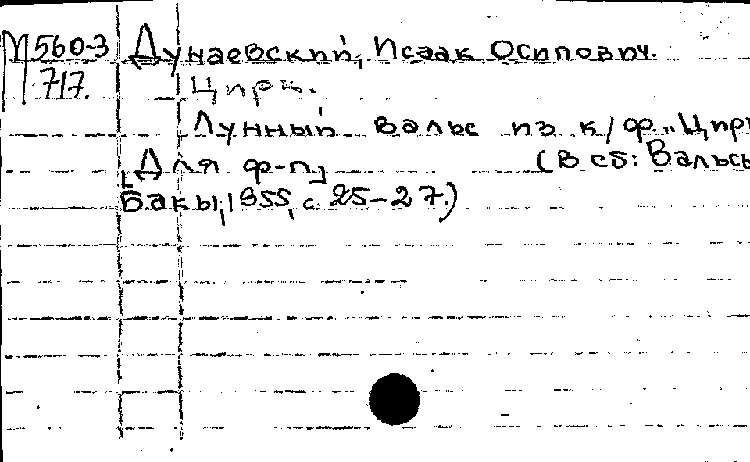 М560-3 Дунаевский, Исаак Осипович.
717. Цирк.
Лунный вальс из к/ф „Цирк
[Для ф-п] (В сб: Вальсы
Бакы, 1955, с. 25-27.)